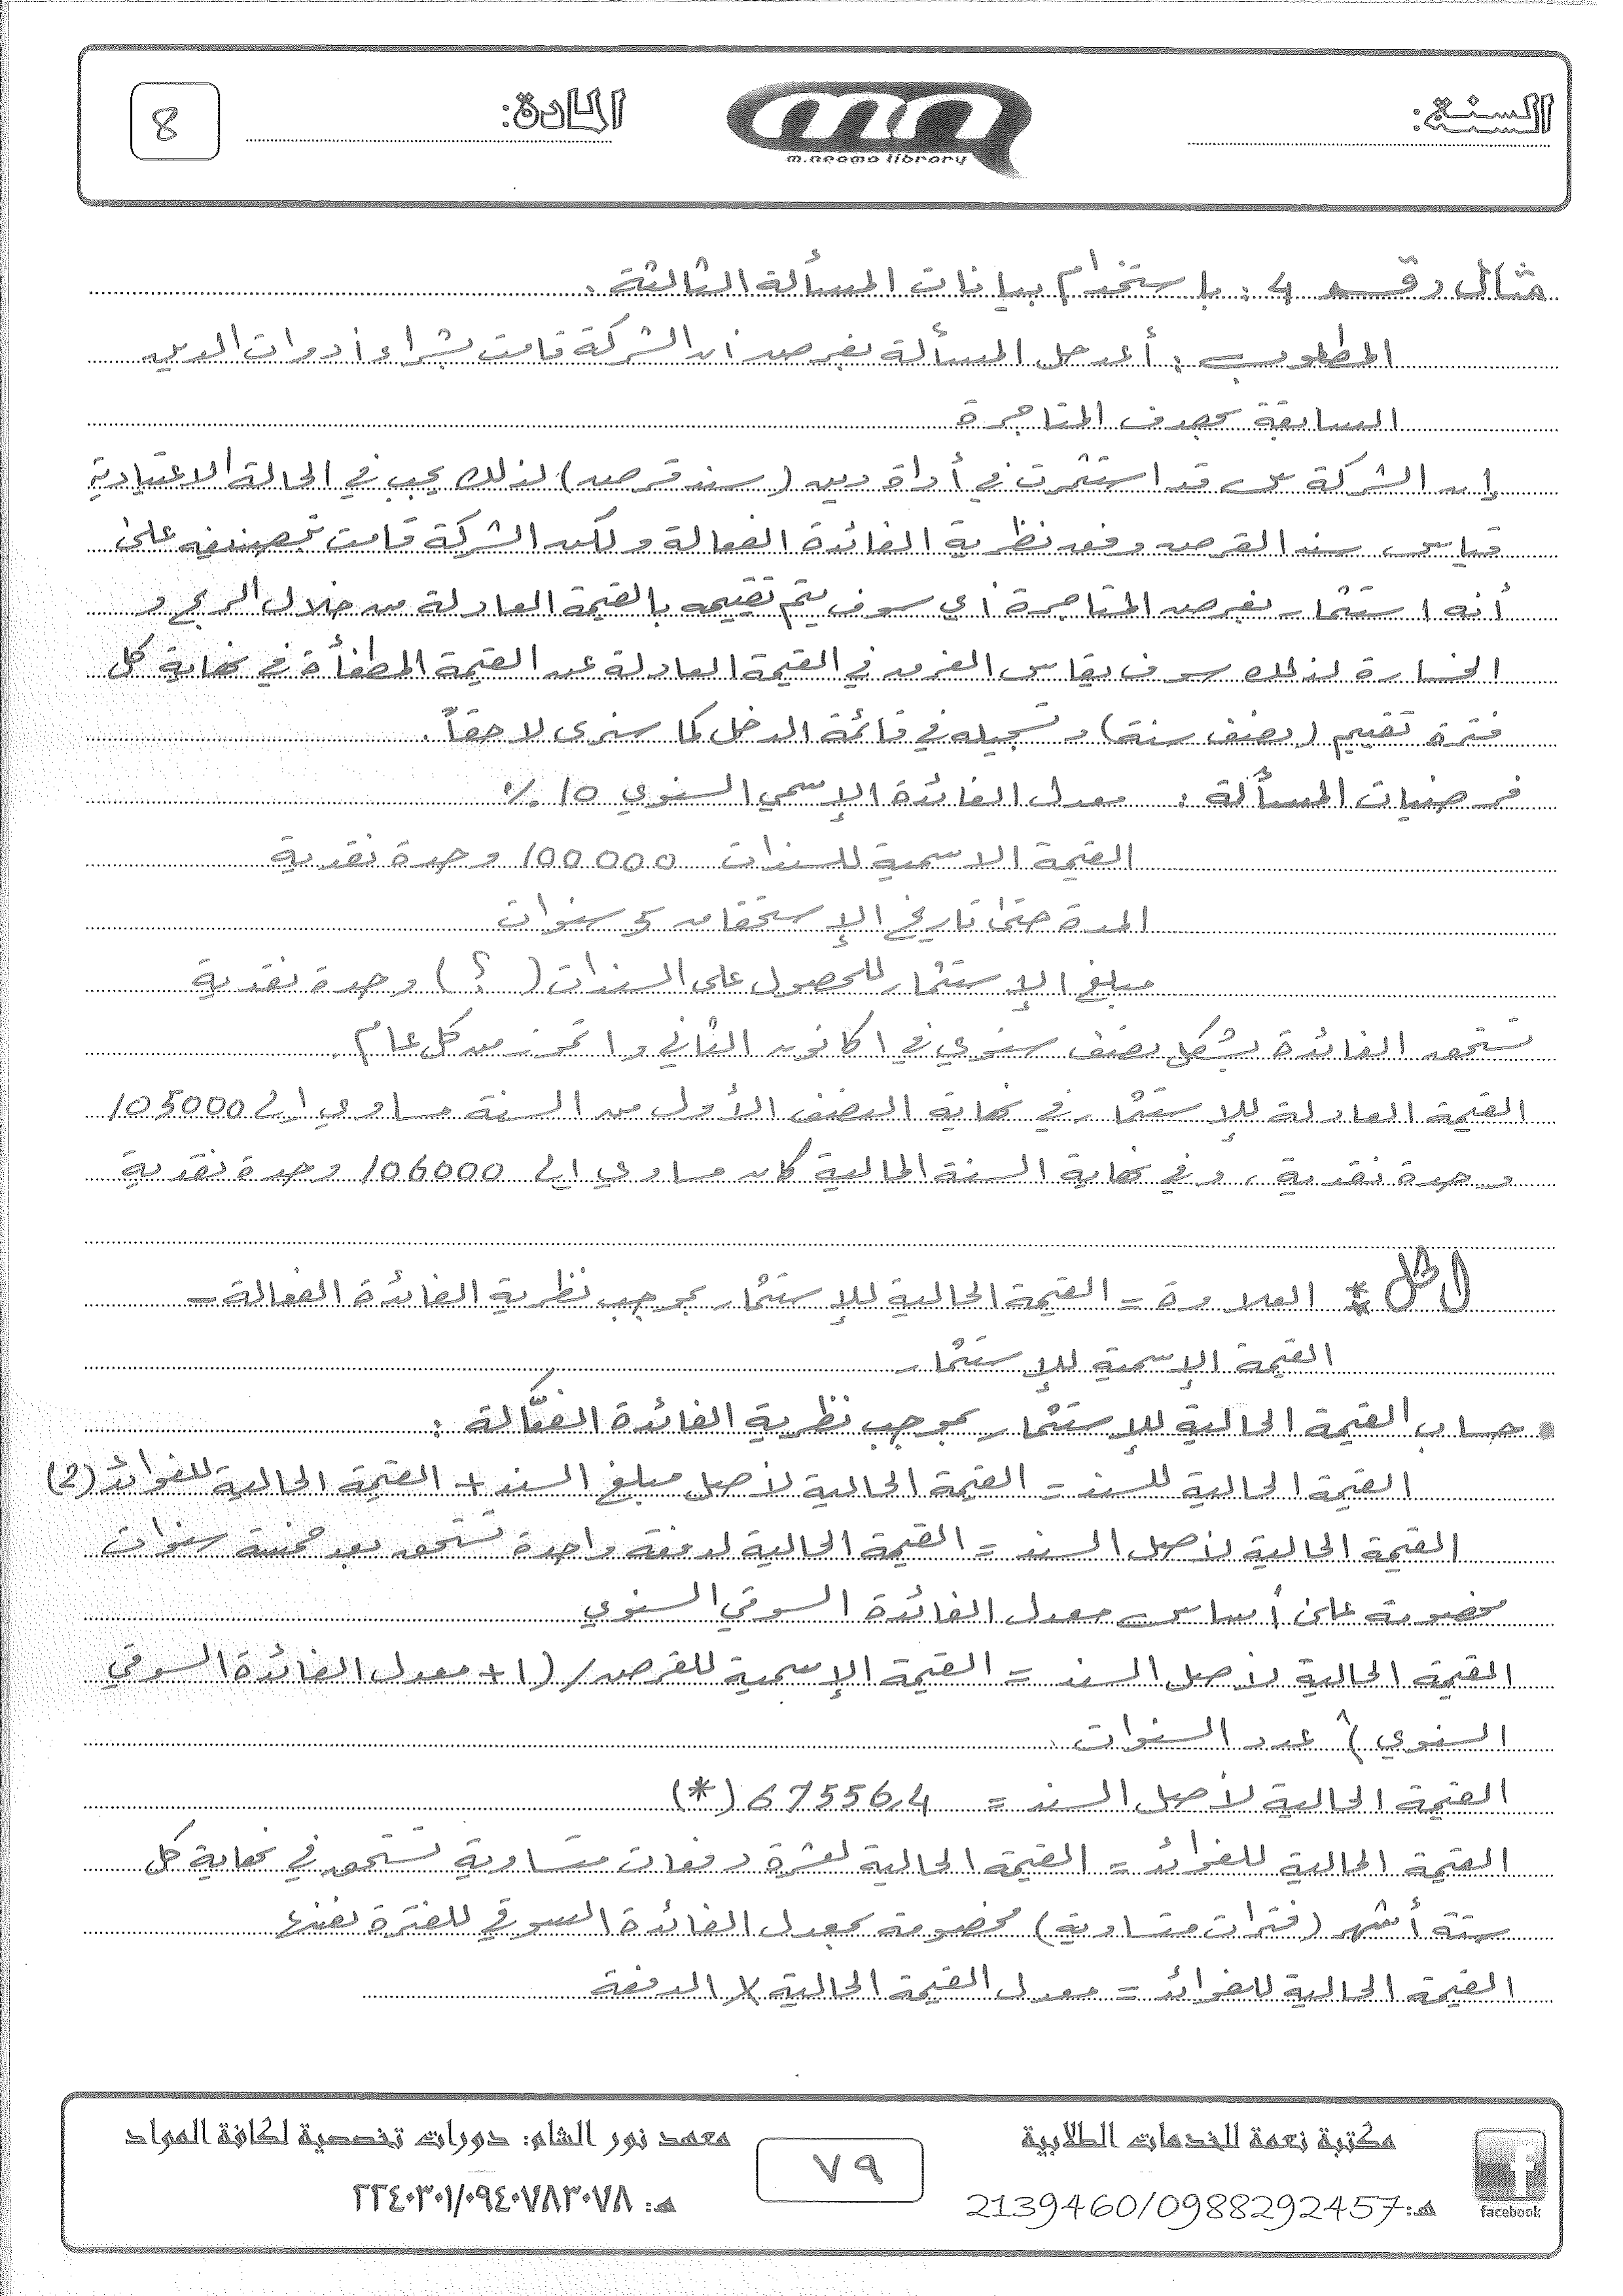 السنة:
m.neoma library
المادة:
8
مثال رقم 4 : باستخدام بيانات المسألة الثالثة .
المطلوب : أعد حل المسألة بفرض أن الشركة قامت بشراء أدوات الدين
السابقة بهدف المتاجرة
إن الشركة س قد استثمرت في أداة دين (سند قرض) لذلك يجب في الحالة الاعتيادية
قياس سند القرض وفق نظرية الفائدة الفعالة ولكن الشركة قامت بتصنيفه على
أنه استثمار بغرض المتاجرة أي سوف يتم تقييمه بالقيمة العادلة من خلال الربح و
الخسارة لذلك سوف يقاس الفرق في القيمة العادلة عن القيمة المطفأة في نهاية كل
فترة تقييم (نصف سنة) وتسجيله في قائمة الدخل كما سنرى لاحقاً .
فرضيات المسألة : معدل الفائدة الإسمي السنوي 10 %
القيمة الاسمية للسندات 100000 وحدة نقدية
المدة حتى تاريخ الإستحقاق 5 سنوات
مبلغ الإستثمار للحصول على السندات ( ؟ ) وحدة نقدية
تستحق الفائدة بشكل نصف سنوي في 1 كانون الثاني و 1 تموز من كل عام .
القيمة العادلة للإستثمار في نهاية النصف الأول من السنة مساوي إلى 105000
وحدة نقدية ، وفي نهاية السنة المالية كان مساوي إلى 106000 وحدة نقدية
الحل * العلاوة = القيمة الحالية للإستثمار بموجب نظرية الفائدة الفعالة -
القيمة الإسمية للإستثمار
• حساب القيمة الحالية للإستثمار بموجب نظرية الفائدة الفعّالة :
القيمة الحالية للسند = القيمة الحالية لأصل مبلغ السند + القيمة الحالية للفوائد (2)
القيمة الحالية لأصل السند = القيمة الحالية لدفعة واحدة تستحق بعد خمسة سنوات
مخصومة على أساس معدل الفائدة السوقي السنوي
القيمة الحالية لأصل السند = القيمة الإسمية للقرض / (1 + معدل الفائدة السوقي
السنوي) ^ عدد السنوات .
القيمة الحالية لأصل السند = 67556,4 (*)
القيمة الحالية للفوائد = القيمة الحالية لعشرة دفعات متساوية تستحق في نهاية كل
ستة أشهر (فترات متساوية) مخصومة بمعدل الفائدة السوقي للفترة نفسها
القيمة الحالية للفوائد = معدل القيمة الحالية X الدفعة
facebook
مكتبة نعمة للخدمات الطلابية
هـ: 2139460/0988292457
٧٩
معهد نور الشام: دورات تخصصية لكافة المواد
هـ: ٢٢٤٠٣٠١/٠٩٤٠٧٨٣٠٧٨